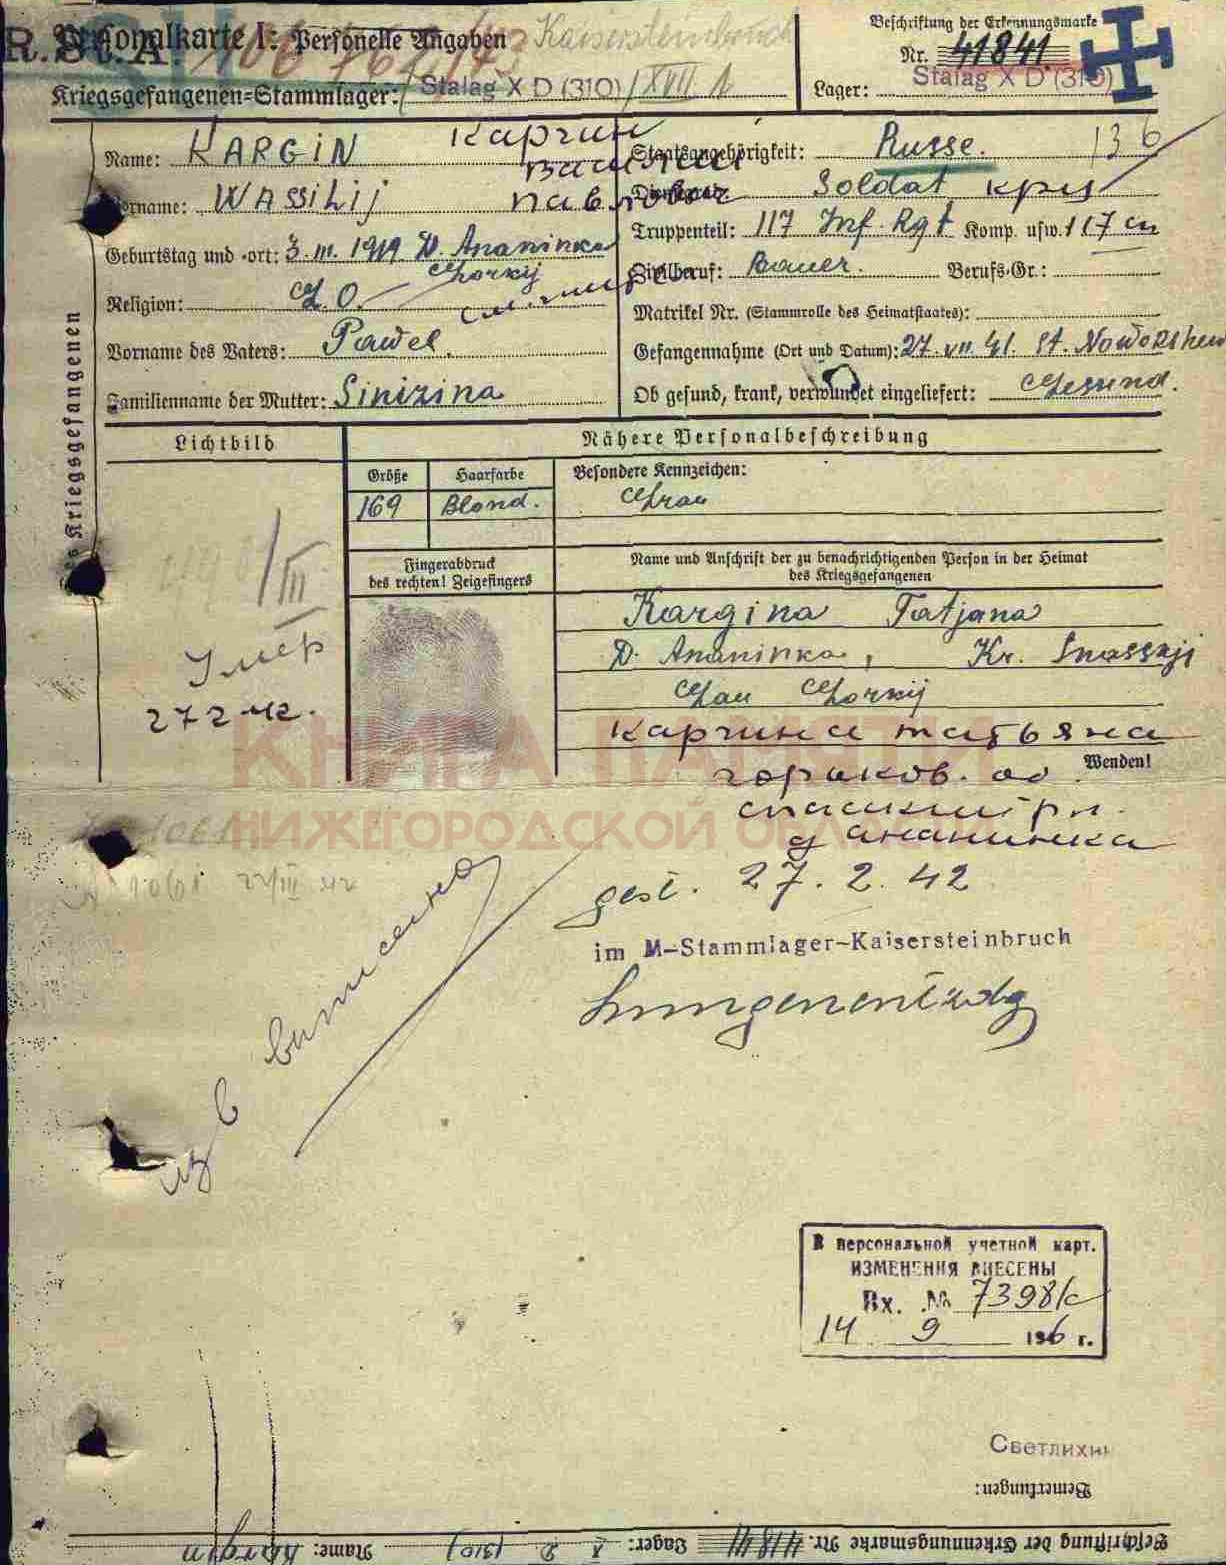 Personalkarte I: Personelle Angaben Kaisersteinbruch
Beschriftung der Erkennungsmarke
Nr. 41841
Kriegsgefangenen-Stammlager: Stalag X D (310) / XVII A
Lager: Stalag X D (310)
des Kriegsgefangenen
Name: KARGIN Каргин
Staatsangehörigkeit: Russe. 136
Василий
Vorname: WASSILIj Павлович
Dienstgrad: Soldat кр-ц
Geburtstag und -ort: 3. III. 1919 D. Ananinka
Gorkij
Truppenteil: 117 Inf. Rgt Komp. usw. 117 сп
Religion: G. O.
Zivilberuf: Bauer. Berufs-Gr.:
Matrikel Nr. (Stammrolle des Heimatstaates):
Vorname des Vaters: Pawel.
Gefangennahme (Ort und Datum): 27. VII. 41. St. Noworshew
Familienname der Mutter: Sinizina
Ob gesund, krank, verwundet eingeliefert: Gesund.
Lichtbild
Nähere Personalbeschreibung
Größe Haarfarbe Besondere Kennzeichen:
169 Blond. Grau
Fingerabdruck
des rechten! Zeigefingers
Name und Anschrift der zu benachrichtigenden Person in der Heimat
des Kriegsgefangenen
Kargina Tatjana
D. Ananinka, Kr. Spasskji
Gau Gorkij
Умер
27 2 42.
Каргина Татьяна
Wenden!
горьков. об
спасский рн.
д ананинка
КНИГА ПАМЯТИ
НИЖЕГОРОДСКОЙ ОБЛАСТИ
gest. 27. 2. 42
im M-Stammlager-Kaisersteinbruch
В персональной учетной карт.
ИЗМЕНЕНИЯ ВНЕСЕНЫ
Вх. № 7398/с
14 9 1946 г.
Светлихин
Bemerkungen:
Beschriftung der Erkennungsmarke Nr. 41841 Lager: X D (310) Name: Kargin